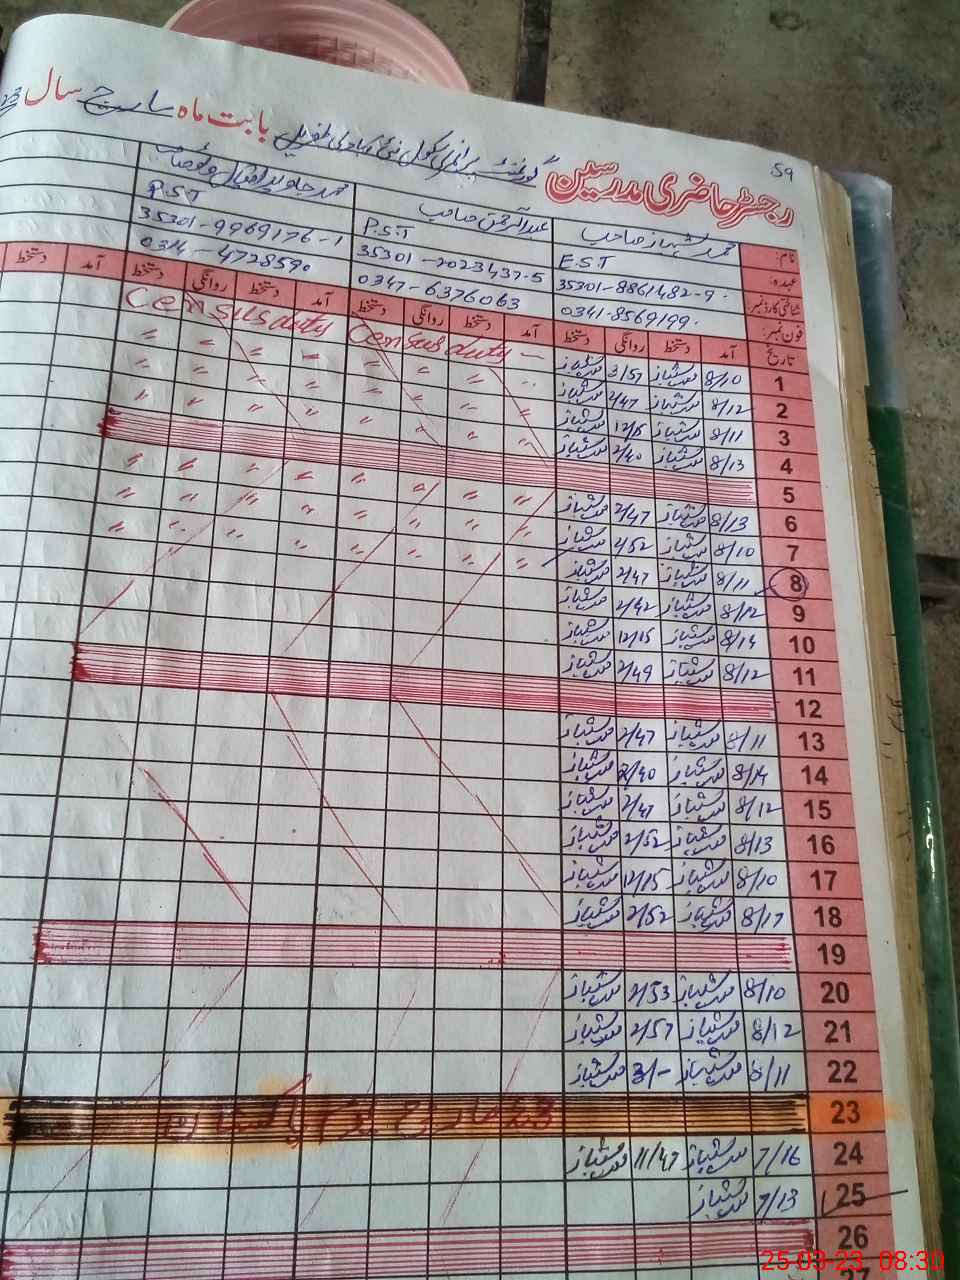 59
رجسٹر حاضری مدرسین گورنمنٹ پرائمری سکول بابت ماہ مارچ سال 23
نام: محمد شہباز صاحب عبدالرحمن صاحب محمد جاوید اقبال
عہدہ: E.S.T P.S.T P.S.T
شناختی کارڈ نمبر 35301-8861482-9 35301-2023437-5 35301-9969176-1
فون نمبر: 0341-8569199 0347-6376063 0314-4728590
تاریخ آمد دستخط روانگی دستخط آمد دستخط روانگی دستخط آمد دستخط روانگی دستخط آمد دستخط
1 8/10 شہباز 3/57 شہباز Census duty Census duty
2 8/12 شہباز 2/47 شہباز
3 8/11 شہباز 12/15 شہباز
4 8/13 شہباز 2/40 شہباز
5
6 8/13 شہباز 2/47 شہباز
7 8/10 شہباز 2/52 شہباز
8 8/11 شہباز 2/47 شہباز
9 8/12 شہباز 2/42 شہباز
10 8/14 شہباز 12/15 شہباز
11 8/12 شہباز 2/49 شہباز
12
13 8/11 شہباز 2/47 شہباز
14 8/14 شہباز 2/40 شہباز
15 8/12 شہباز 2/47 شہباز
16 8/13 شہباز 2/52 شہباز
17 8/10 شہباز 12/15 شہباز
18 8/17 شہباز 2/52 شہباز
19
20 8/10 شہباز 2/53 شہباز
21 8/12 شہباز 2/57 شہباز
22 8/11 شہباز 3/- شہباز
23 23 مارچ یوم پاکستان
24 7/16 شہباز 11/47 شہباز
25 7/13 شہباز
26
27
25-03-23 08:30